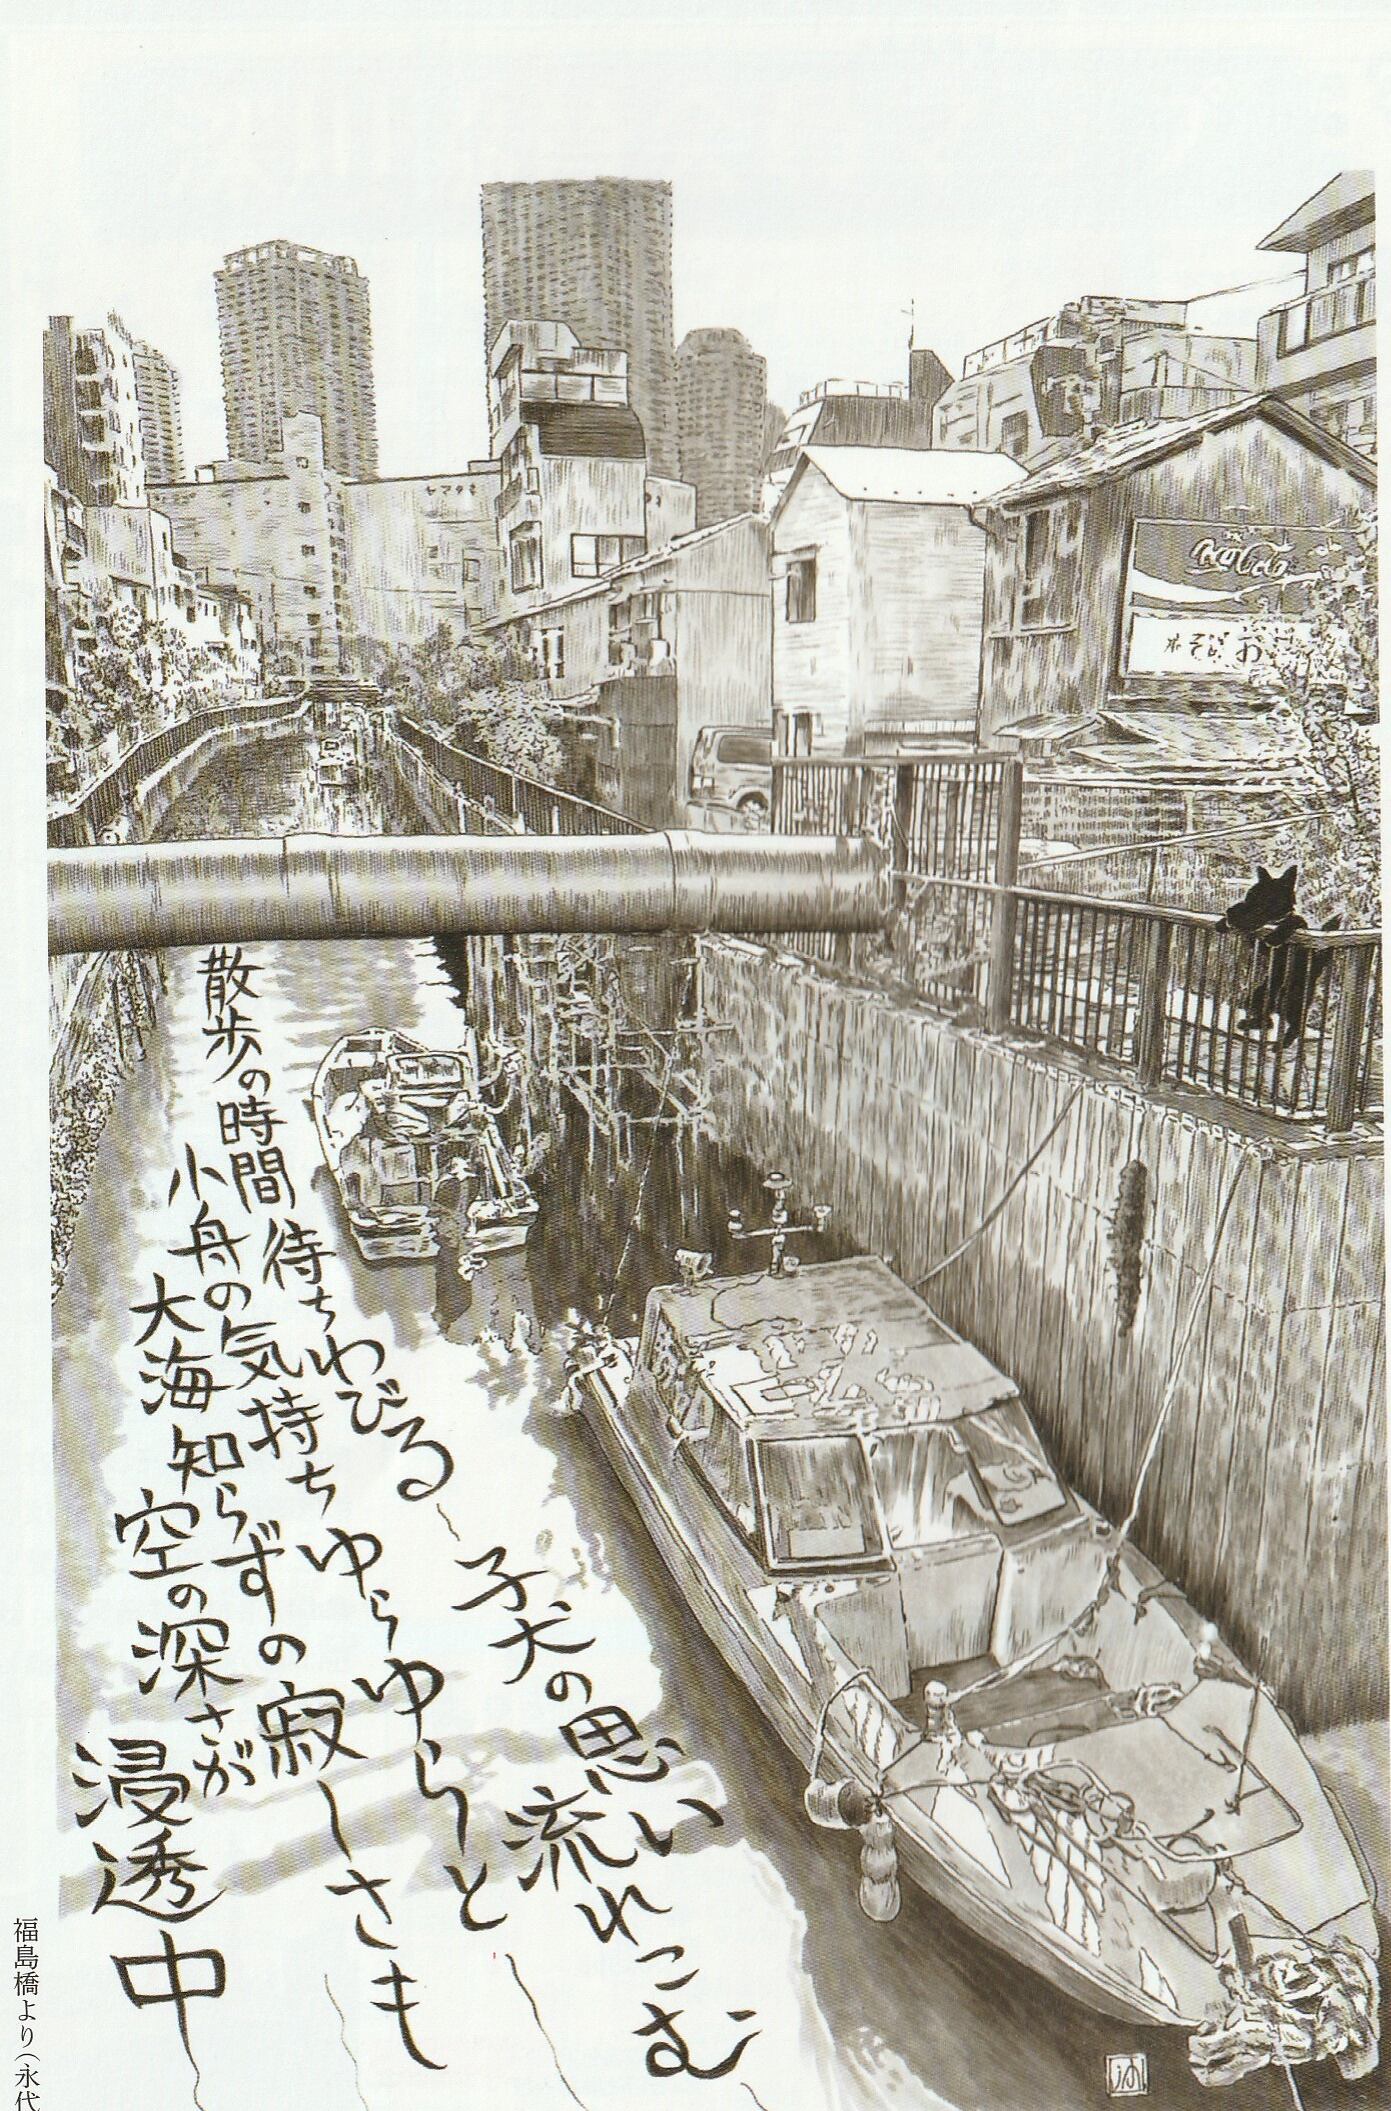 Coca-Cola
散歩の時間待ちわびる
子犬の思い
流れこむ
小舟の気持ちゆらゆらと
大海知らずの寂しさも
空の深さが
浸透中
福島橋より(永代